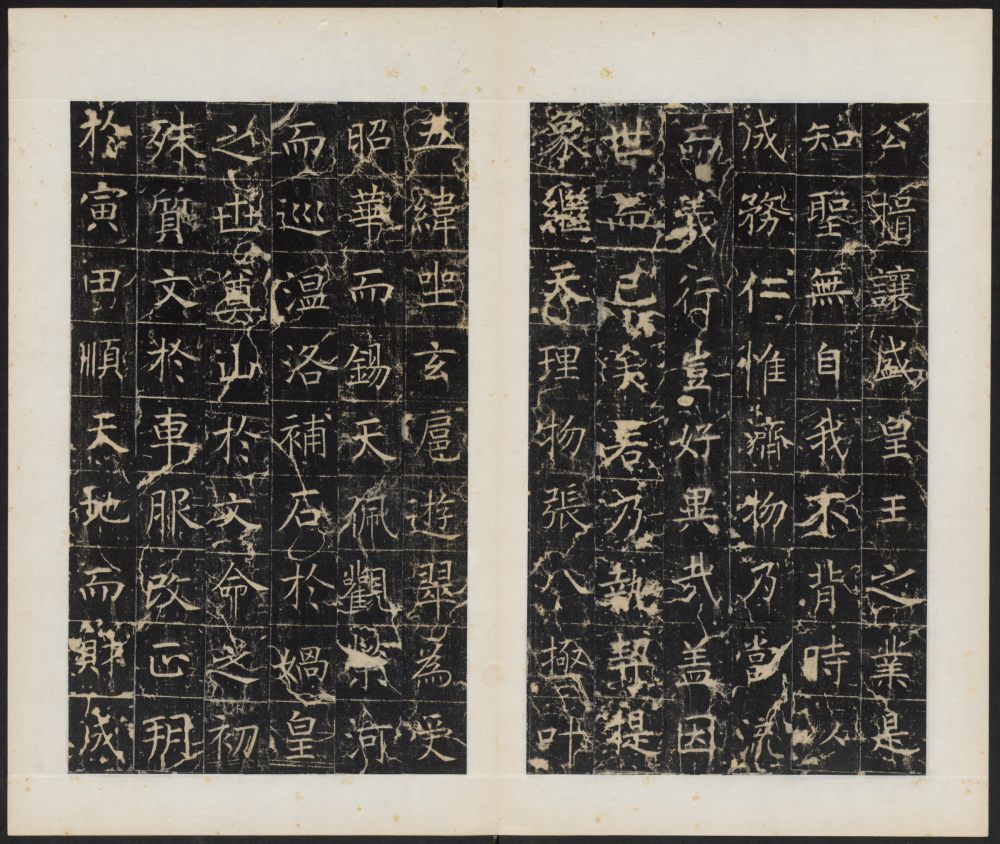 公揖讓盛皇王之業是
知聖無自我不背時以
成務仁惟濟物乃當流
而義行豈好異哉盖因
世而已矣若乃執契提
象繼天理物張八極叶
五緯坐玄扈遊翠為受
昭華而錫天佩觀榮河
而巡温洛補石於媧皇
之世奠山於文命之初
殊質文於車服改正朔
於寅田順天地而財成